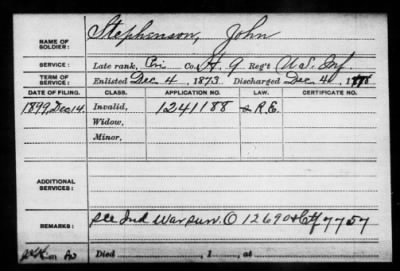 NAME OF SOLDIER: Stephenson, John
SERVICE: Late rank, Pri Co. H. 9 Reg't U.S. Inf.
TERM OF SERVICE: Enlisted Dec 4, 1873 Discharged Dec 4, 1878
DATE OF FILING. CLASS. APPLICATION NO. LAW. CERTIFICATE NO.
1899, Dec 14. Invalid, 1241188 R.E.
Widow,
Minor,
ADDITIONAL SERVICES:
REMARKS: See Ind War surv. O 12690 & Ctf 7757
Died , 1 , at